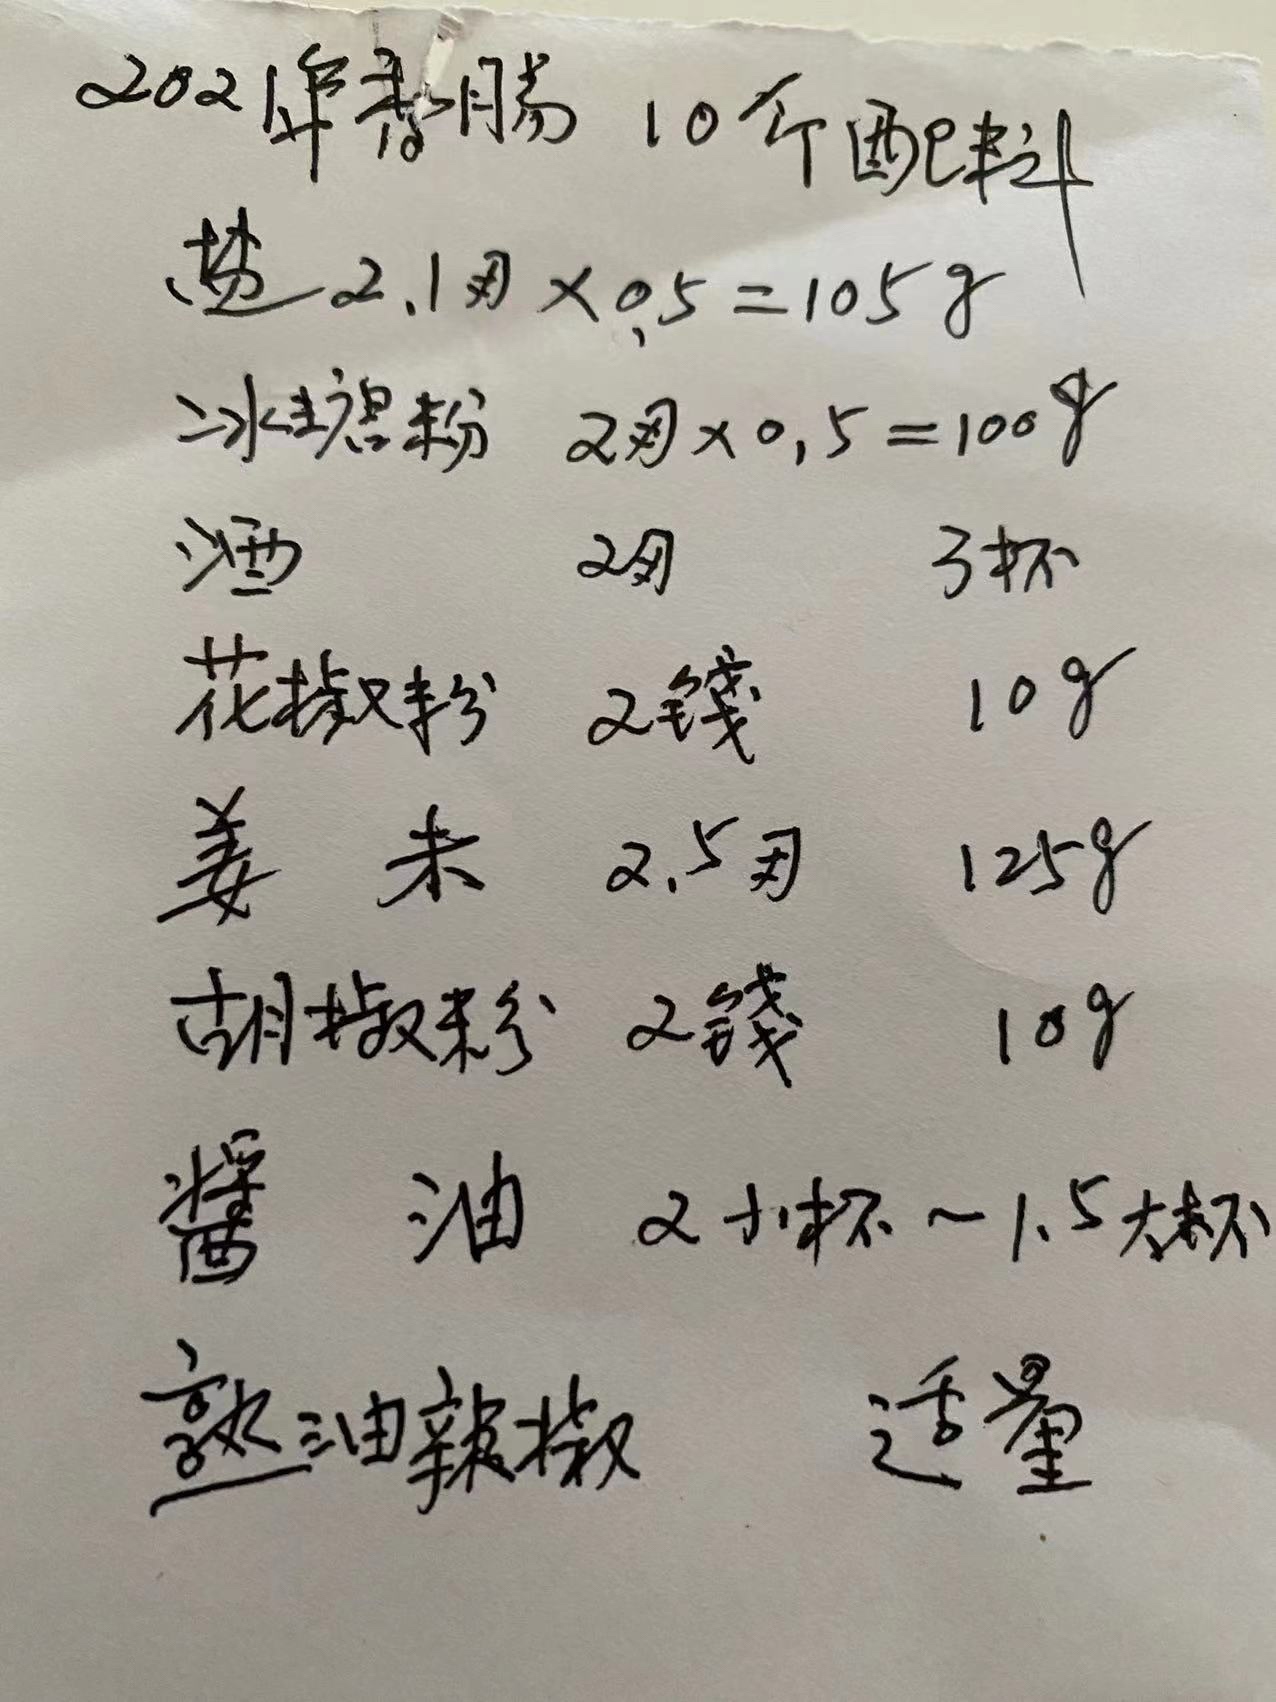 2021年香腸 10斤配料
盐 2.1两×0.5=105g
冰糖粉 2两×0.5=100g
酒 2两 3杯
花椒粉 2錢 10g
姜末 2.5两 125g
胡椒粉 2錢 10g
醬油 2小杯～1.5大杯
熟油辣椒 适量